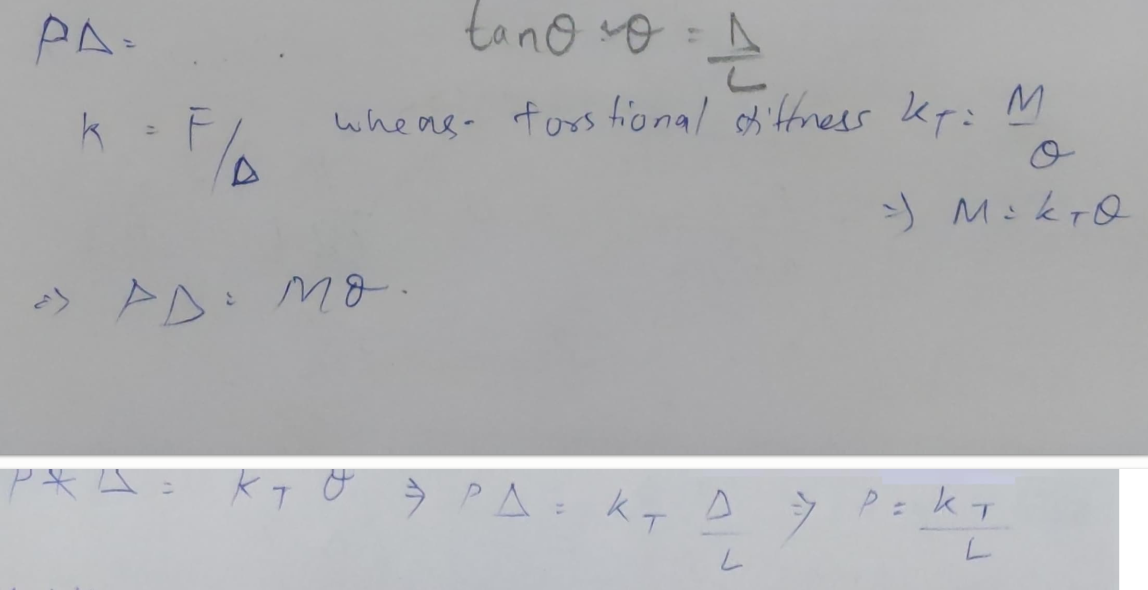 PΔ =
tanθ ≈ θ = Δ/L
k = F/Δ wheas- torstional stiffness k_T = M/θ
=> M = k_T θ
=> PΔ = Mθ.
P * Δ = k_T θ => PΔ = k_T Δ/L => P = k_T/L